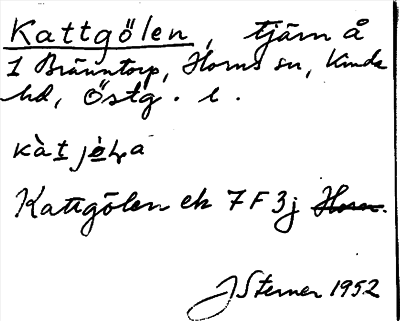 Kattgölen, tjärn å
1 Bränntorp, Horns sn, Kinda
hd, Östg. l.
Kattgölen ek 7F3j Horn.
J Sterner 1952